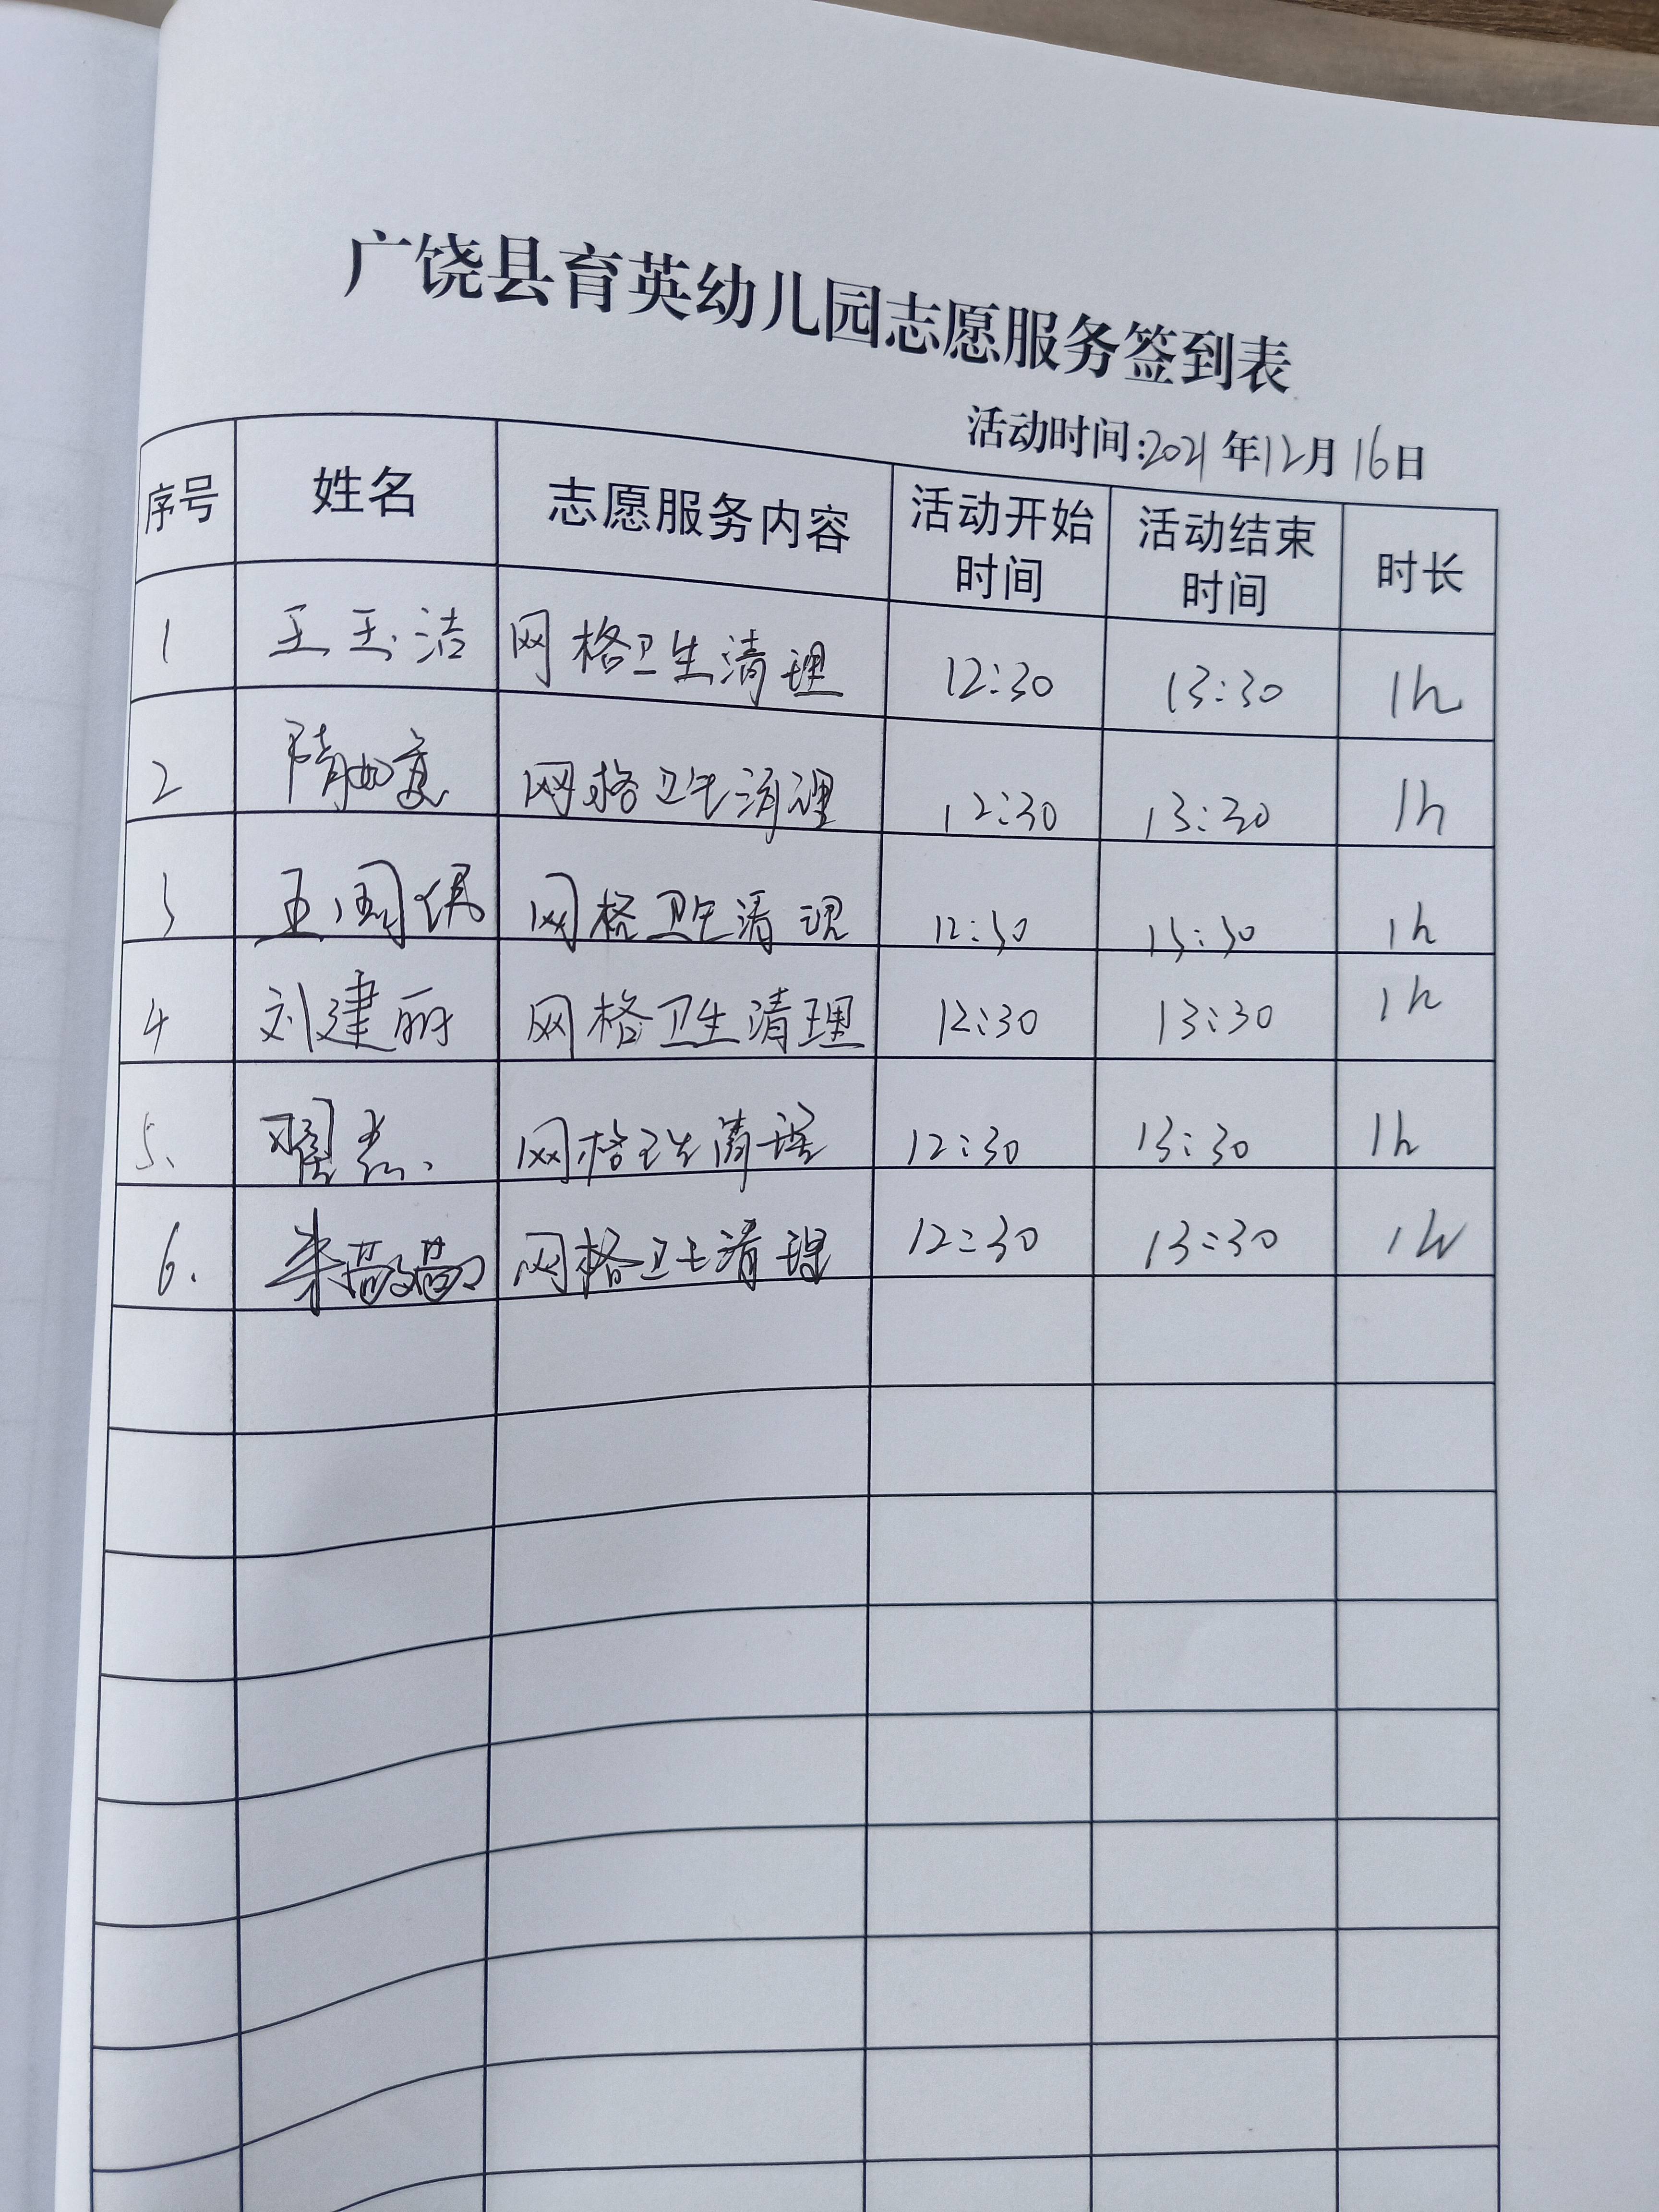 广饶县育英幼儿园志愿服务签到表
活动时间:2021年12月16日
序号 姓名 志愿服务内容 活动开始时间 活动结束时间 时长
1 王玉洁 网格卫生清理 12:30 13:30 1h
2 网格卫生清理 12:30 13:30 1h
3 网格卫生清理 12:30 13:30 1h
4 刘建丽 网格卫生清理 12:30 13:30 1h
5、 网格卫生清理 12:30 13:30 1h
6. 网格卫生清理 12:30 13:30 1h